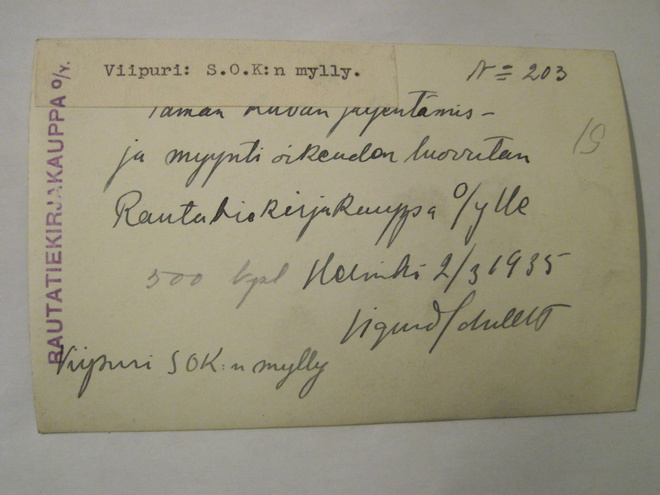 Viipuri: S.O.K:n mylly.
No 203
Tämän kuvan jäljentämis-
ja myynti oikeuden luovutan
Rautatiekirjakauppa O/Ylle
500 kpl Helsinki 2/3 1935
Sigurd
Viipuri SOK:n mylly
19
RAUTATIEKIRJAKAUPPA O/Y.